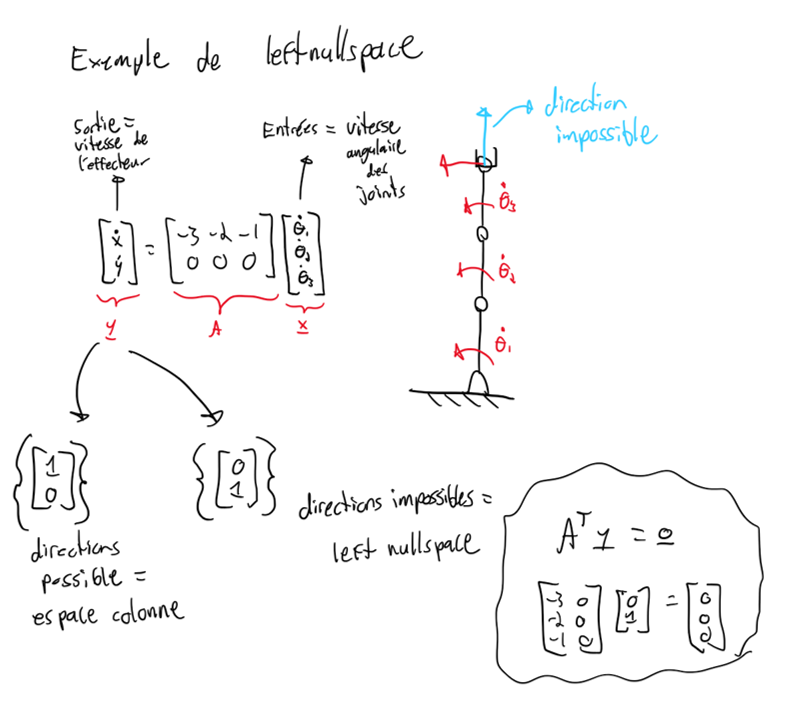 Exemple de left nullspace
Sortie =
vitesse de
l'effecteur
Entrées = vitesse
angulaire
des
joints
direction
impossible
[ẋ ẏ] = [-3 -2 -1; 0 0 0] [θ̇1 θ̇2 θ̇3]
y A x
θ̇3
θ̇2
θ̇1
{[1 0]} {[0 1]}
directions
possible =
espace colonne
directions impossibles =
left nullspace
Aᵀ y = 0
[-3 0; -2 0; -1 0] [0 1] = [0 0 0]